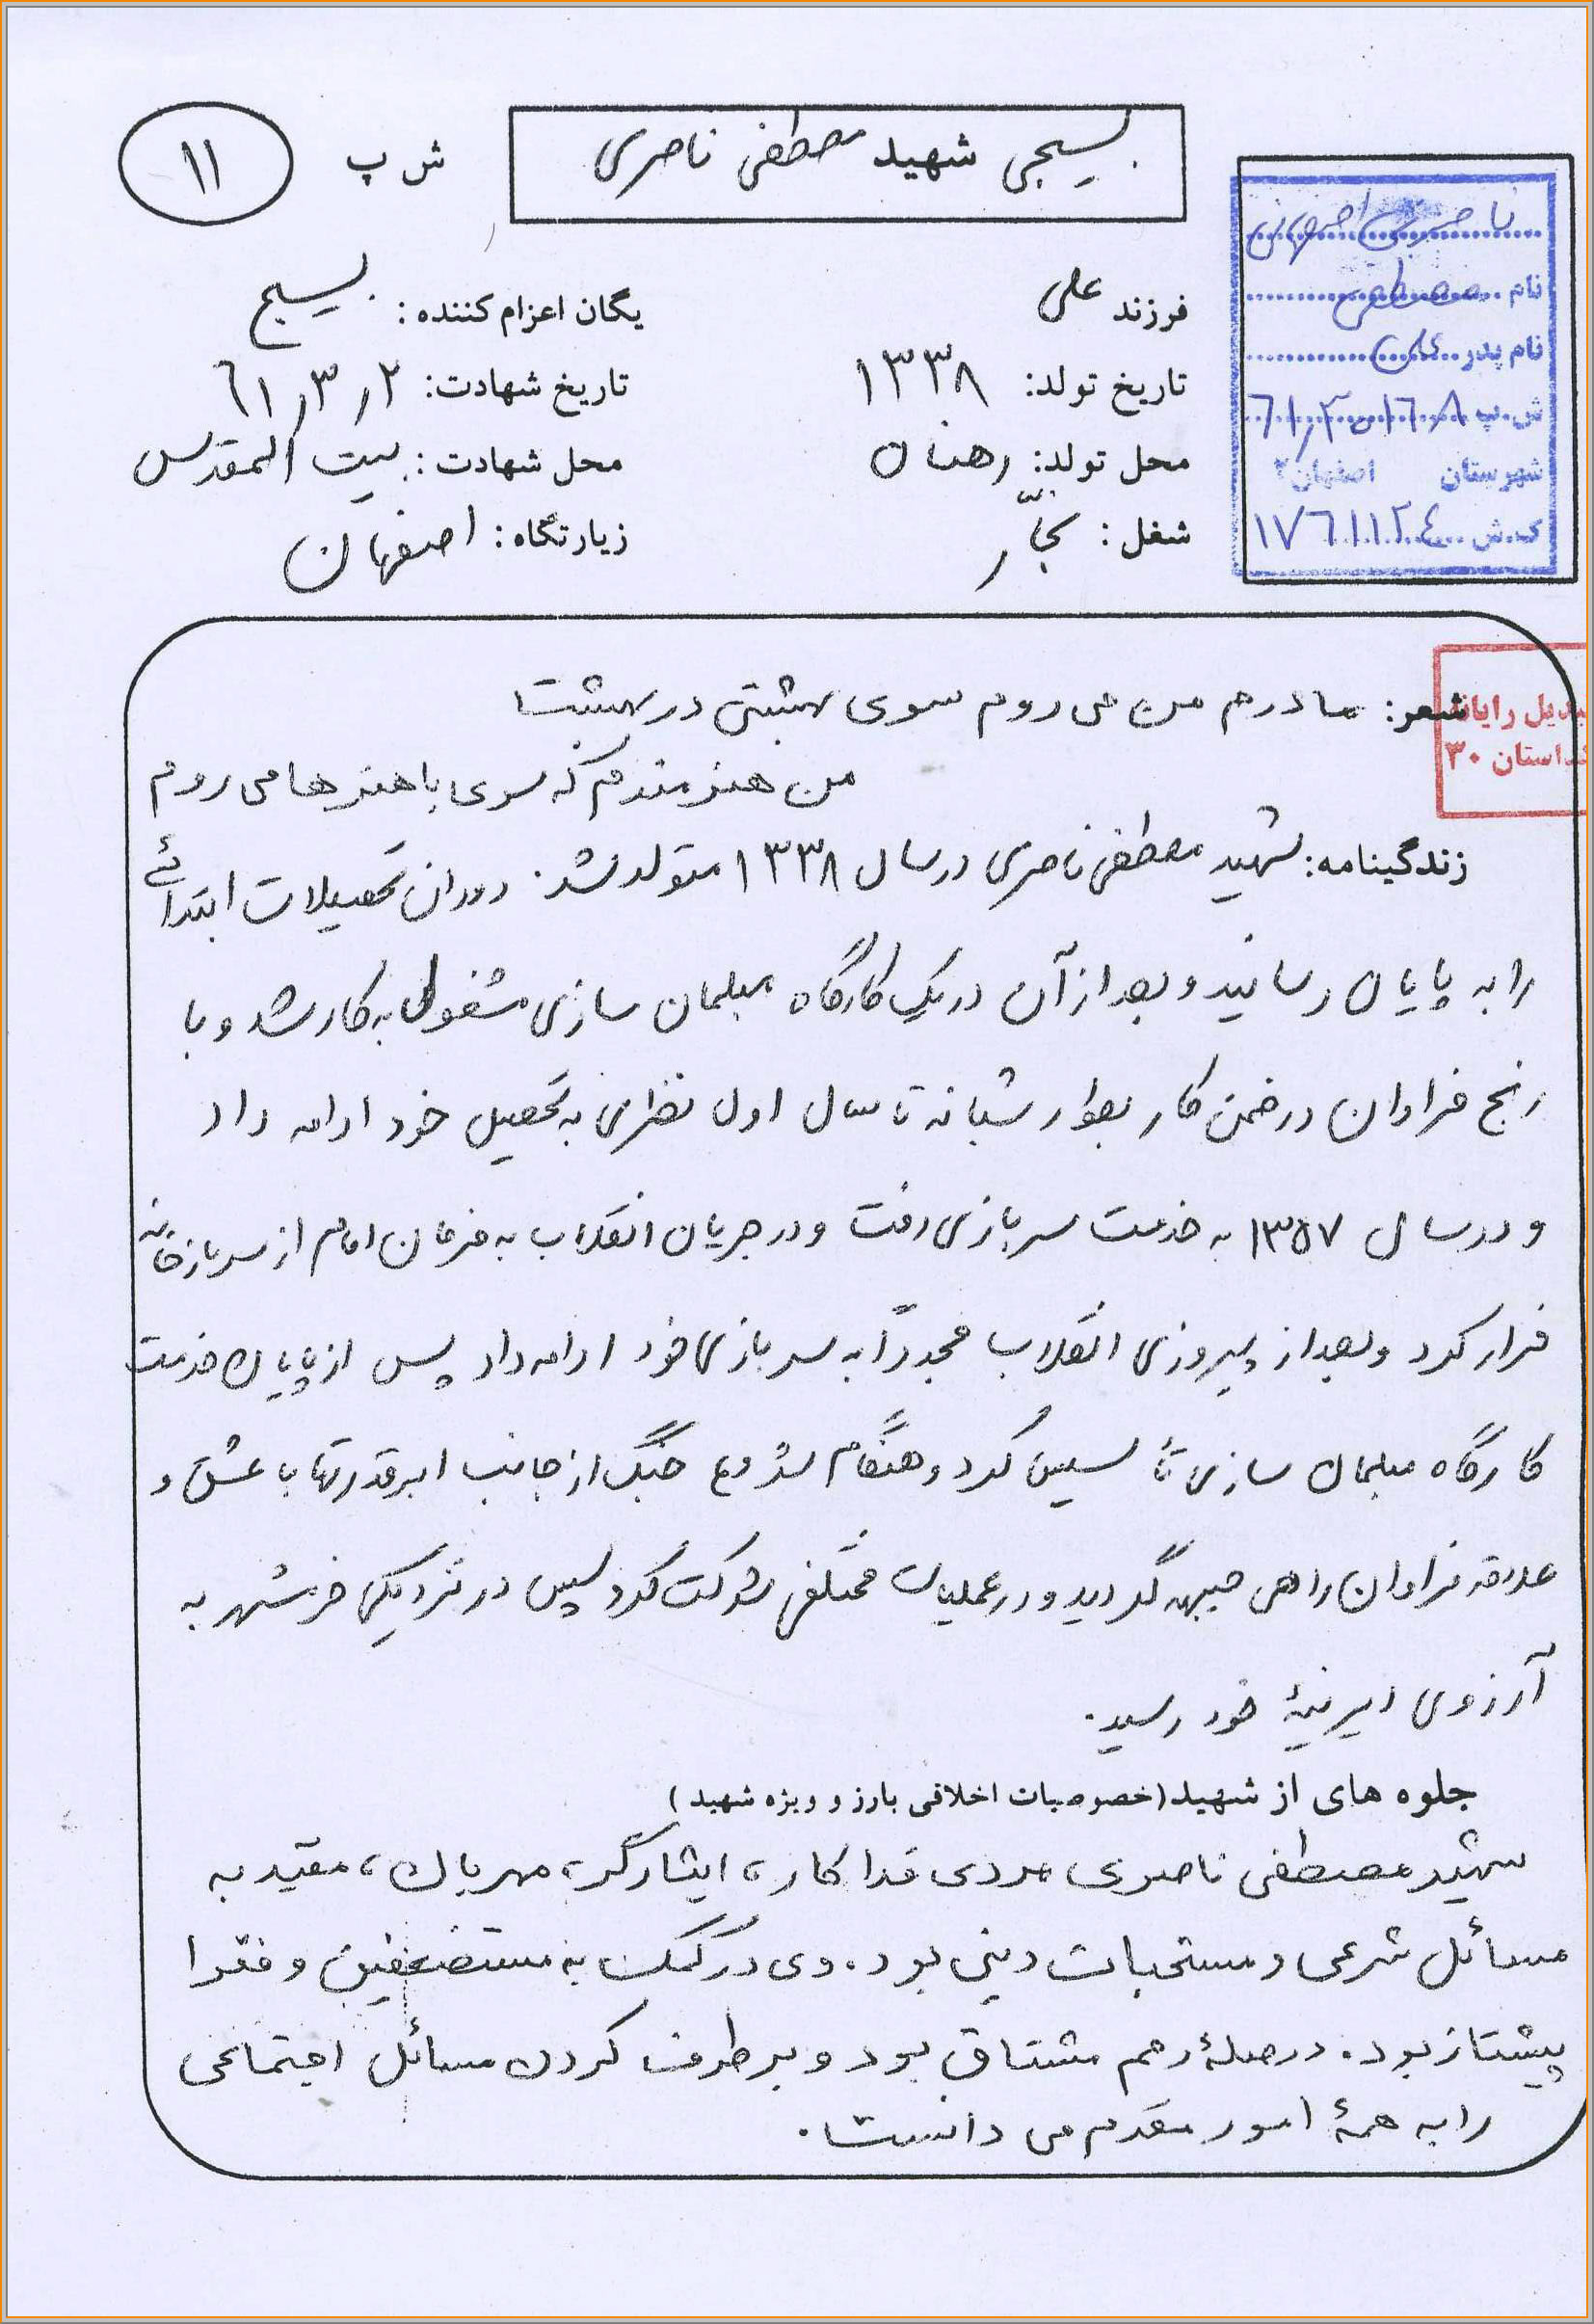 بسیجی شهید مصطفی ناصری
ش پ ۱۱
ناصری اصفهانی
نام مصطفی
نام پدر علی
ش.پ
شهرستان اصفهان ۲
ک.ش ۱۷۶۱۱۲۴
فرزند علی
یگان اعزام کننده: بسیج
تاریخ تولد: ۱۳۳۸
تاریخ شهادت: ۶۱٫۳٫۲
محل تولد: رهنان
محل شهادت: بیت المقدس
شغل: نجّار
زیارتگاه: اصفهان
تبدیل رایانه
استان ۳۰
شعر: مادرم من می روم سوی بهشتی در بهشت
من هنرمندم که سوی با هنرها می روم
زندگینامه: شهید مصطفی ناصری در سال ۱۳۳۸ متولد شد. دوران تحصیلات ابتدائی
را به پایان رسانید و بعد از آن در یک کارگاه مبلمان سازی مشغول به کار شد و با
رنج فراوان در ضمن کار بطور شبانه تا سال اول نظری به تحصیل خود ادامه داد
و در سال ۱۳۵۷ به خدمت سربازی رفت و در جریان انقلاب به فرمان امام از سربازخانه
فرار کرد و بعد از پیروزی انقلاب مجددًا به سربازی خود ادامه داد پس از پایان خدمت
کارگاه مبلمان سازی تأسیس کرد و هنگام شروع جنگ از جانب ابرقدرتها با عشق و
علاقه فراوان راهی جبهه گردید و در عملیات مختلفی شرکت کرد سپس در نزدیکی خرمشهر به
آرزوی دیرینهٔ خود رسید.
جلوه های از شهید (خصوصیات اخلاقی بارز و ویژه شهید)
شهید مصطفی ناصری مردی فداکار، ایثارگر، مهربان، مقید به
مسائل شرعی و مستحبات دینی بود. وی در کمک به مستضعفین و فقرا
پیشتاز بود. در صلهٔ رحم مشتاق بود و برطرف کردن مسائل اجتماعی
را به همهٔ امور مقدم می دانست.